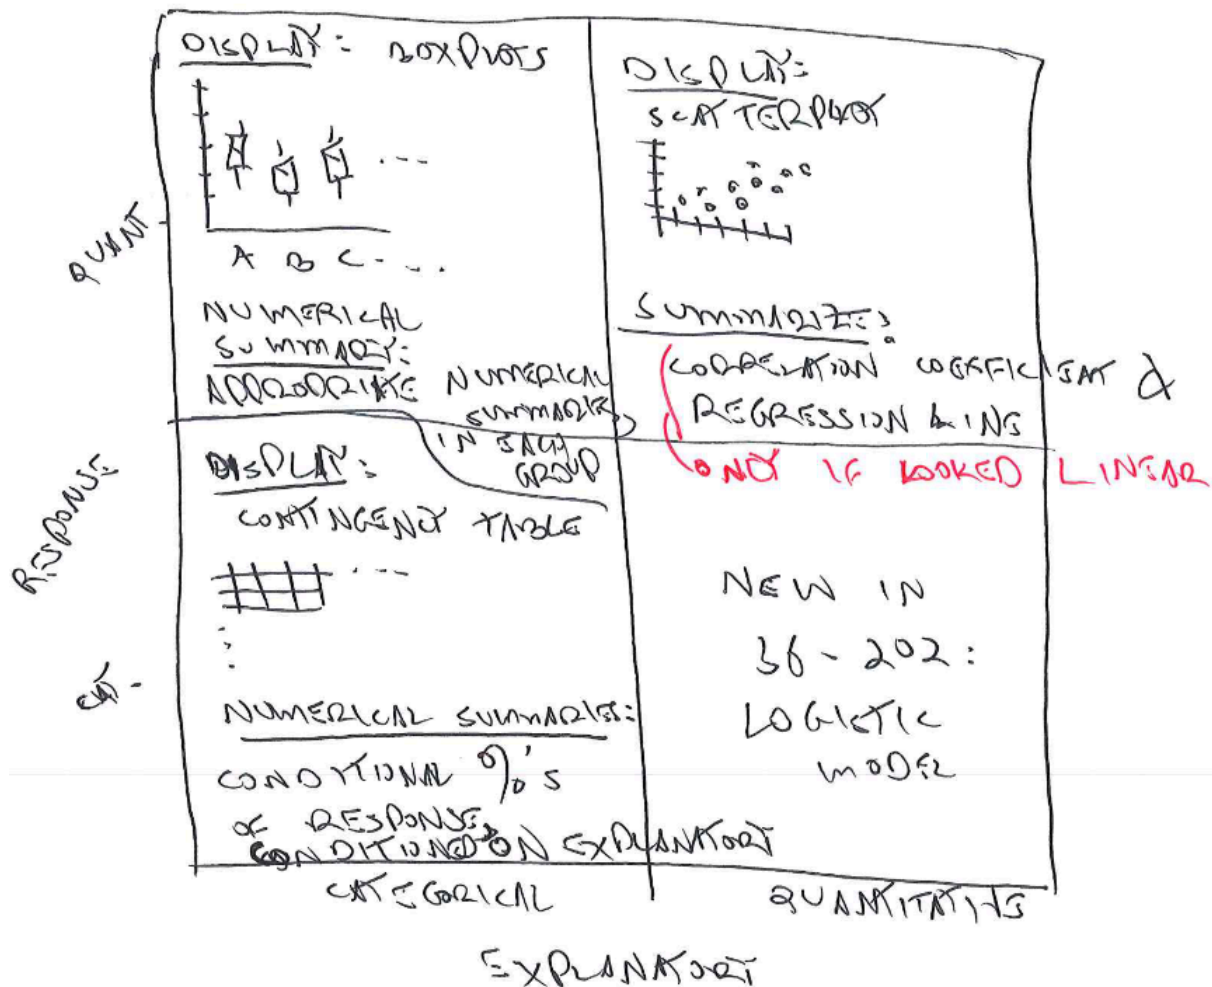 DISPLAY: BOXPLOTS
A B C - . . .
NUMERICAL
SUMMARY:
APPROPRIATE NUMERICAL
SUMMARIES
IN EACH
GROUP
DISPLAY:
SCATTERPLOT
SUMMARIZE:
CORRELATION COEFFICIENT &
REGRESSION LINE
ONLY IF LOOKED LINEAR
DISPLAY:
CONTINGENCY TABLE
NUMERICAL SUMMARIES:
CONDITIONAL %'S
OF RESPONSE,
CONDITIONED ON EXPLANATORY
NEW IN
36-202:
LOGISTIC
MODEL
QUANT.
RESPONSE
CAT.
CATEGORICAL
QUANTITATIVE
EXPLANATORY